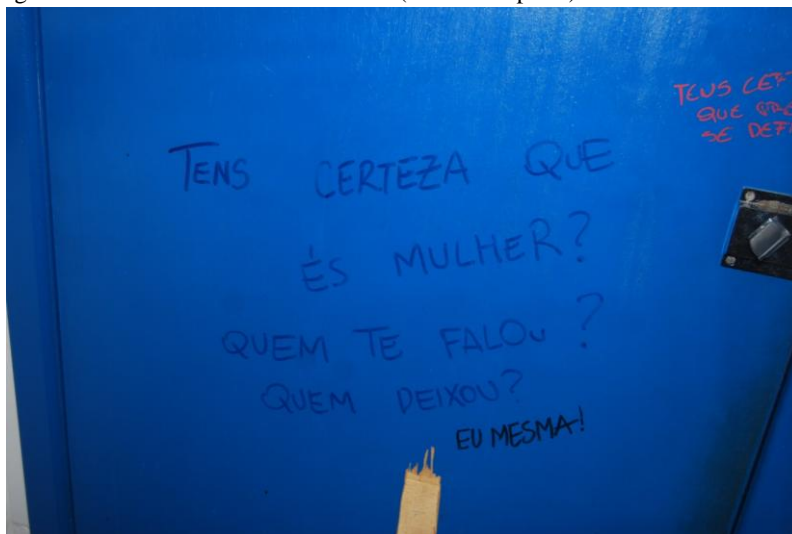 TENS CERTEZA QUE
ÉS MULHER?
QUEM TE FALOU?
QUEM DEIXOU?
EU MESMA!
TENS
QUE
SE